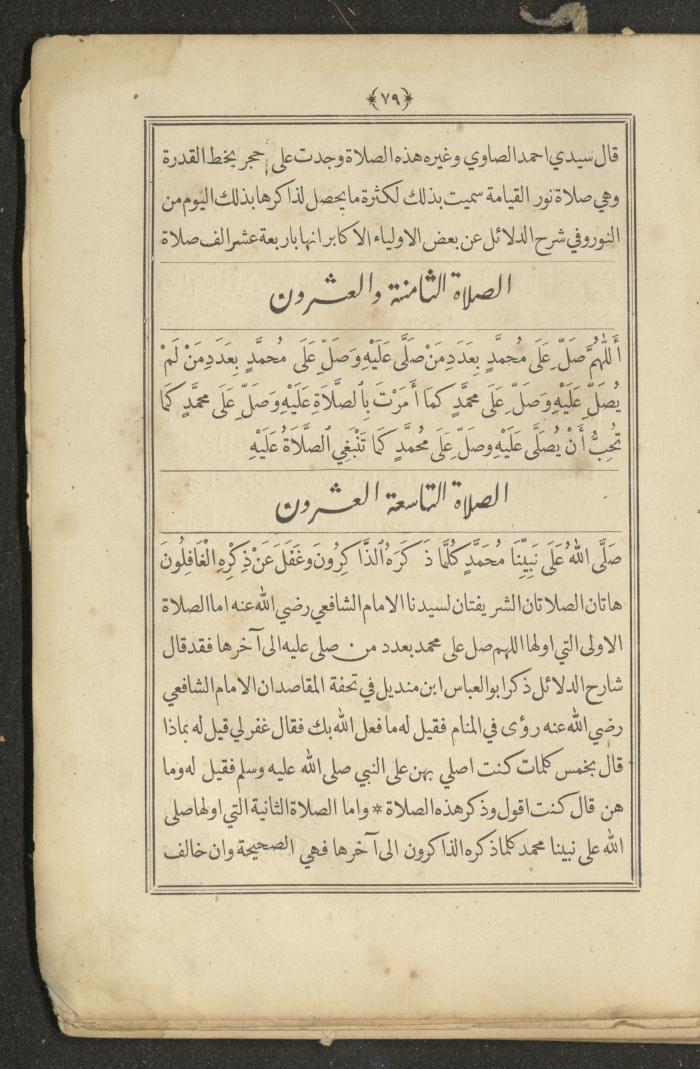 ﴿٧٩﴾
قال سيدي احمد الصاوي وغيره هذه الصلاة وجدت على حجر بخط القدرة
وهي صلاة نور القيامة سميت بذلك لكثرة ما يحصل لذاكرها بذلك اليوم من
النور وفي شرح الدلائل عن بعض الاولياء الاكابر انها باربعة عشر الف صلاة
الصلاة الثامنة والعشرون
أَللّٰهُمَّ صَلِّ عَلَى مُحَمَّدٍ بِعَدَدِ مَنْ صَلَّى عَلَيْهِ وَصَلِّ عَلَى مُحَمَّدٍ بِعَدَدِ مَنْ لَمْ
يُصَلِّ عَلَيْهِ وَصَلِّ عَلَى مُحَمَّدٍ كَمَا أَمَرْتَ بِٱلصَّلَاةِ عَلَيْهِ وَصَلِّ عَلَى مُحَمَّدٍ كَمَا
تُحِبُّ أَنْ يُصَلَّى عَلَيْهِ وَصَلِّ عَلَى مُحَمَّدٍ كَمَا تَنْبَغِي ٱلصَّلَاةُ عَلَيْهِ
الصلاة التاسعة العشرون
صَلَّى اللهُ عَلَى نَبِيِّنَا مُحَمَّدٍ كُلَّمَا ذَكَرَهُ ٱلذَّاكِرُونَ وَغَفَلَ عَنْ ذِكْرِهِ الْغَافِلُونَ
هاتان الصلاتان الشريفتان لسيدنا الامام الشافعي رضي الله عنه اما الصلاة
الاولى التي اولها اللهم صل على محمد بعدد من صلى عليه الى آخرها فقد قال
شارح الدلائل ذكر ابو العباس ابن منديل في تحفة المقاصد ان الامام الشافعي
رضي الله عنه رؤى في المنام فقيل له ما فعل الله بك فقال غفر لي قيل له بماذا
قال بخمس كلمات كنت اصلي بهن على النبي صلى الله عليه وسلم فقيل له وما
هن قال كنت اقول وذكر هذه الصلاة * واما الصلاة الثانية التي اولها صلى
الله على نبينا محمد كلما ذكره الذاكرون الى آخرها فهي الصحيحة وان خالف